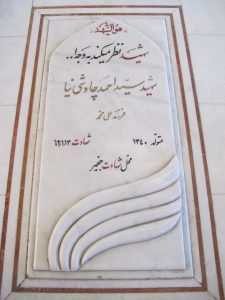 هوالشهید
شهید نظر میکند به وجه ا...
شهید سید احمد چاوشی نیا
فرزند علی محمد
متولد ۱۳۷۰ شهادت
محل شهادت